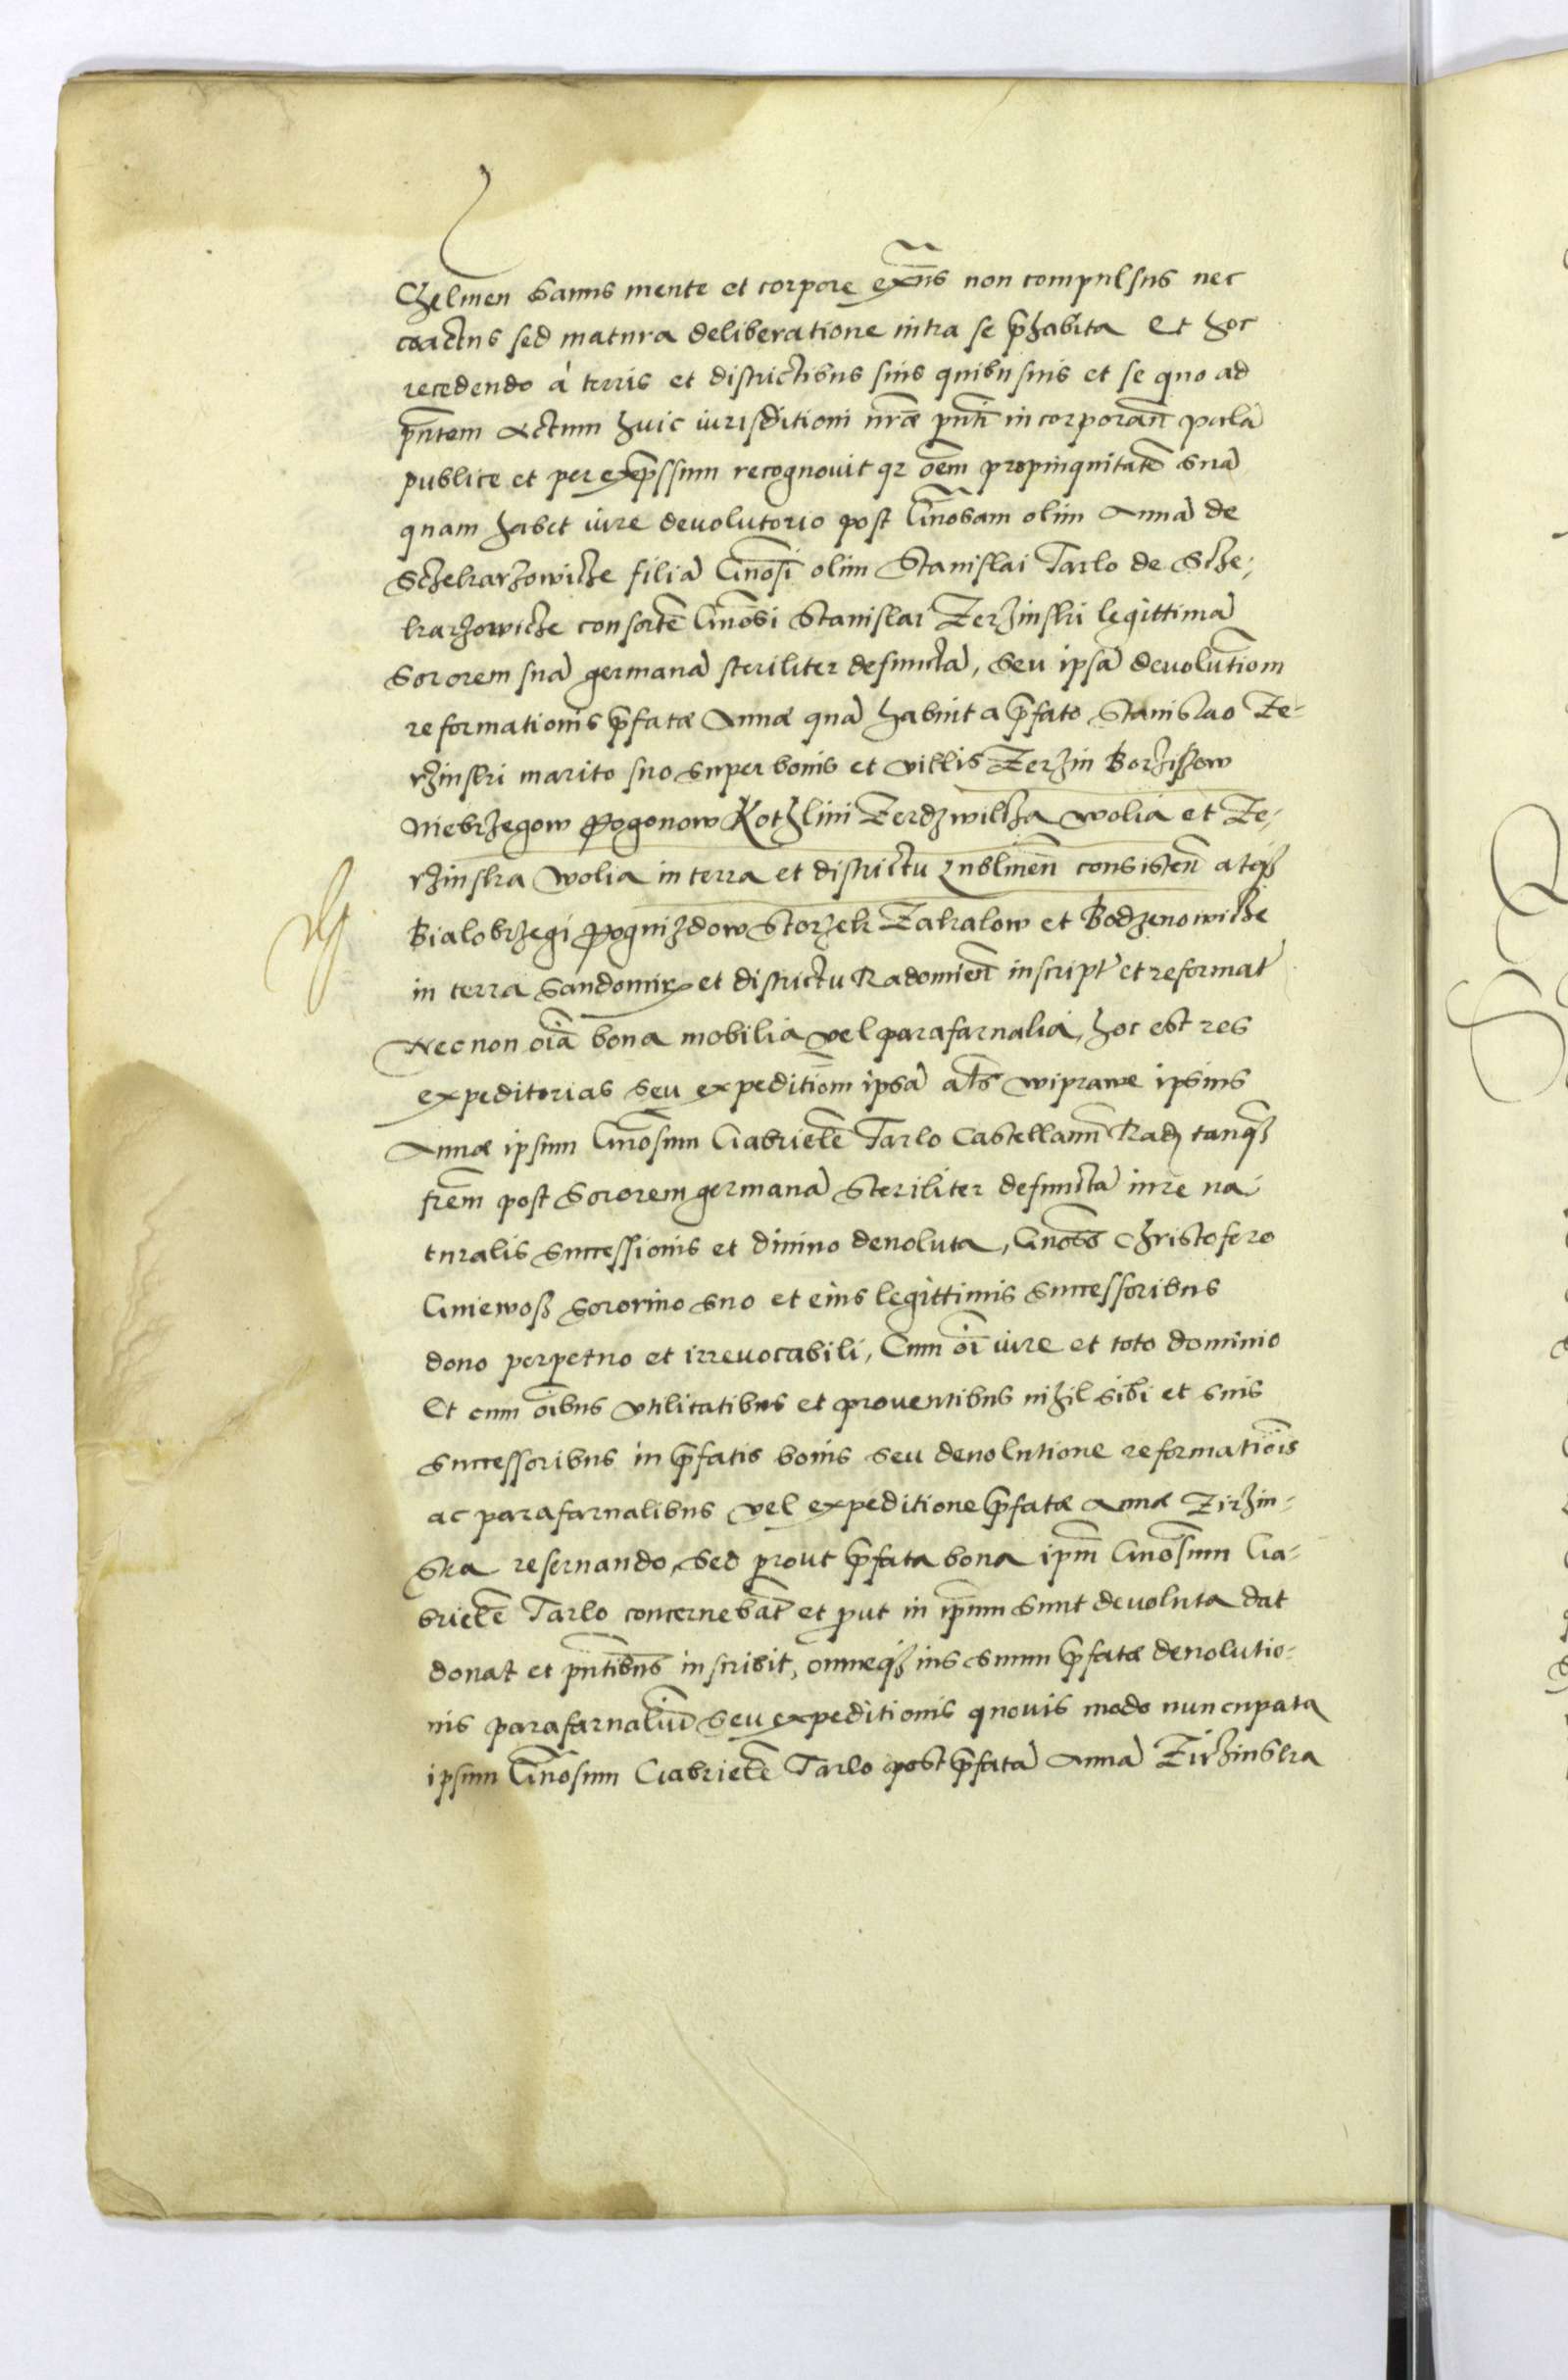 Chelmen sanus mente et corpore exñs non compulsus nec
coactus sed matura deliberatione intra se p̃habita Et hoc
recedendo á terris et districtibus suis quibusuis et se quo ad
p̃ntem Actum huic iurisditioni nr̃æ pñti incorporañ palã
publice et per exp̃ssum recognovit qz oẽm propinquitatẽ suã
quam habet iure devolutorio post Gñosam olim Annã de
Sczekarzowicze filiã Gñosi olim Stanislai Tarlo de Scze,
karzowicze consortẽ Gñosi Stanislai Zerzinski legittimã
sororem suã germanã steriliter defunctã, seu ipsã devolutiom̃
reformationis p̃fatæ Annæ quã habuit a p̃fato Stanislao Ze-
rzinski marito suo super bonis et villis Zerzin Borziszow
Niebrzegow Pogonow Kotzlini Zerdzwilcza wolia et Ze,
rzinska wolia in terra et districtu Lublineñ consisteñ atqz
Bialobrzegi Pognizdow Storzek Zakalow et Bodzenowicze
in terra Sandomir et districtu Radomieñ inscript̃ et reformat̃
Nec non oĩa bona mobilia vel parafarnalia, hoc est res
expeditorias seu expeditiom̃ ipsã al̃s wiprawe ipsius
Annæ ipsum Gñosum Gabrielẽ Tarlo Castellanũ Rad, tanqz
frẽm post sororem germanã steriliter defunctã iure na
turalis successionis et divino devoluta, Gñoso Christofero
Gniewosz sororino suo et eius legittimis successoribus
dono perpetuo et irrevocabili, Cum oĩ iure et toto dominio
Et cum oĩbus vtilitatibus et proventibus nihil sibi et suis
successoribus in p̃fatis bonis seu devolutione reformatiõis
ac parafarnalibus vel expeditione p̃fatæ Annæ Zirzin-
ska reservando, sed prout p̃fata bona ipm̃ Gñosum Ga-
brielẽ Tarlo concernebãt et put in ip̃um sunt devoluta dat
donat et pñtibus inscribit, omneqz ius suum p̃fatæ devolutio-
nis parafarnaliũ seu expeditionis quovis modo nuncupata
ipsum Gñosum Gabrielẽ Tarlo post p̃fatã Annã Zirzinska